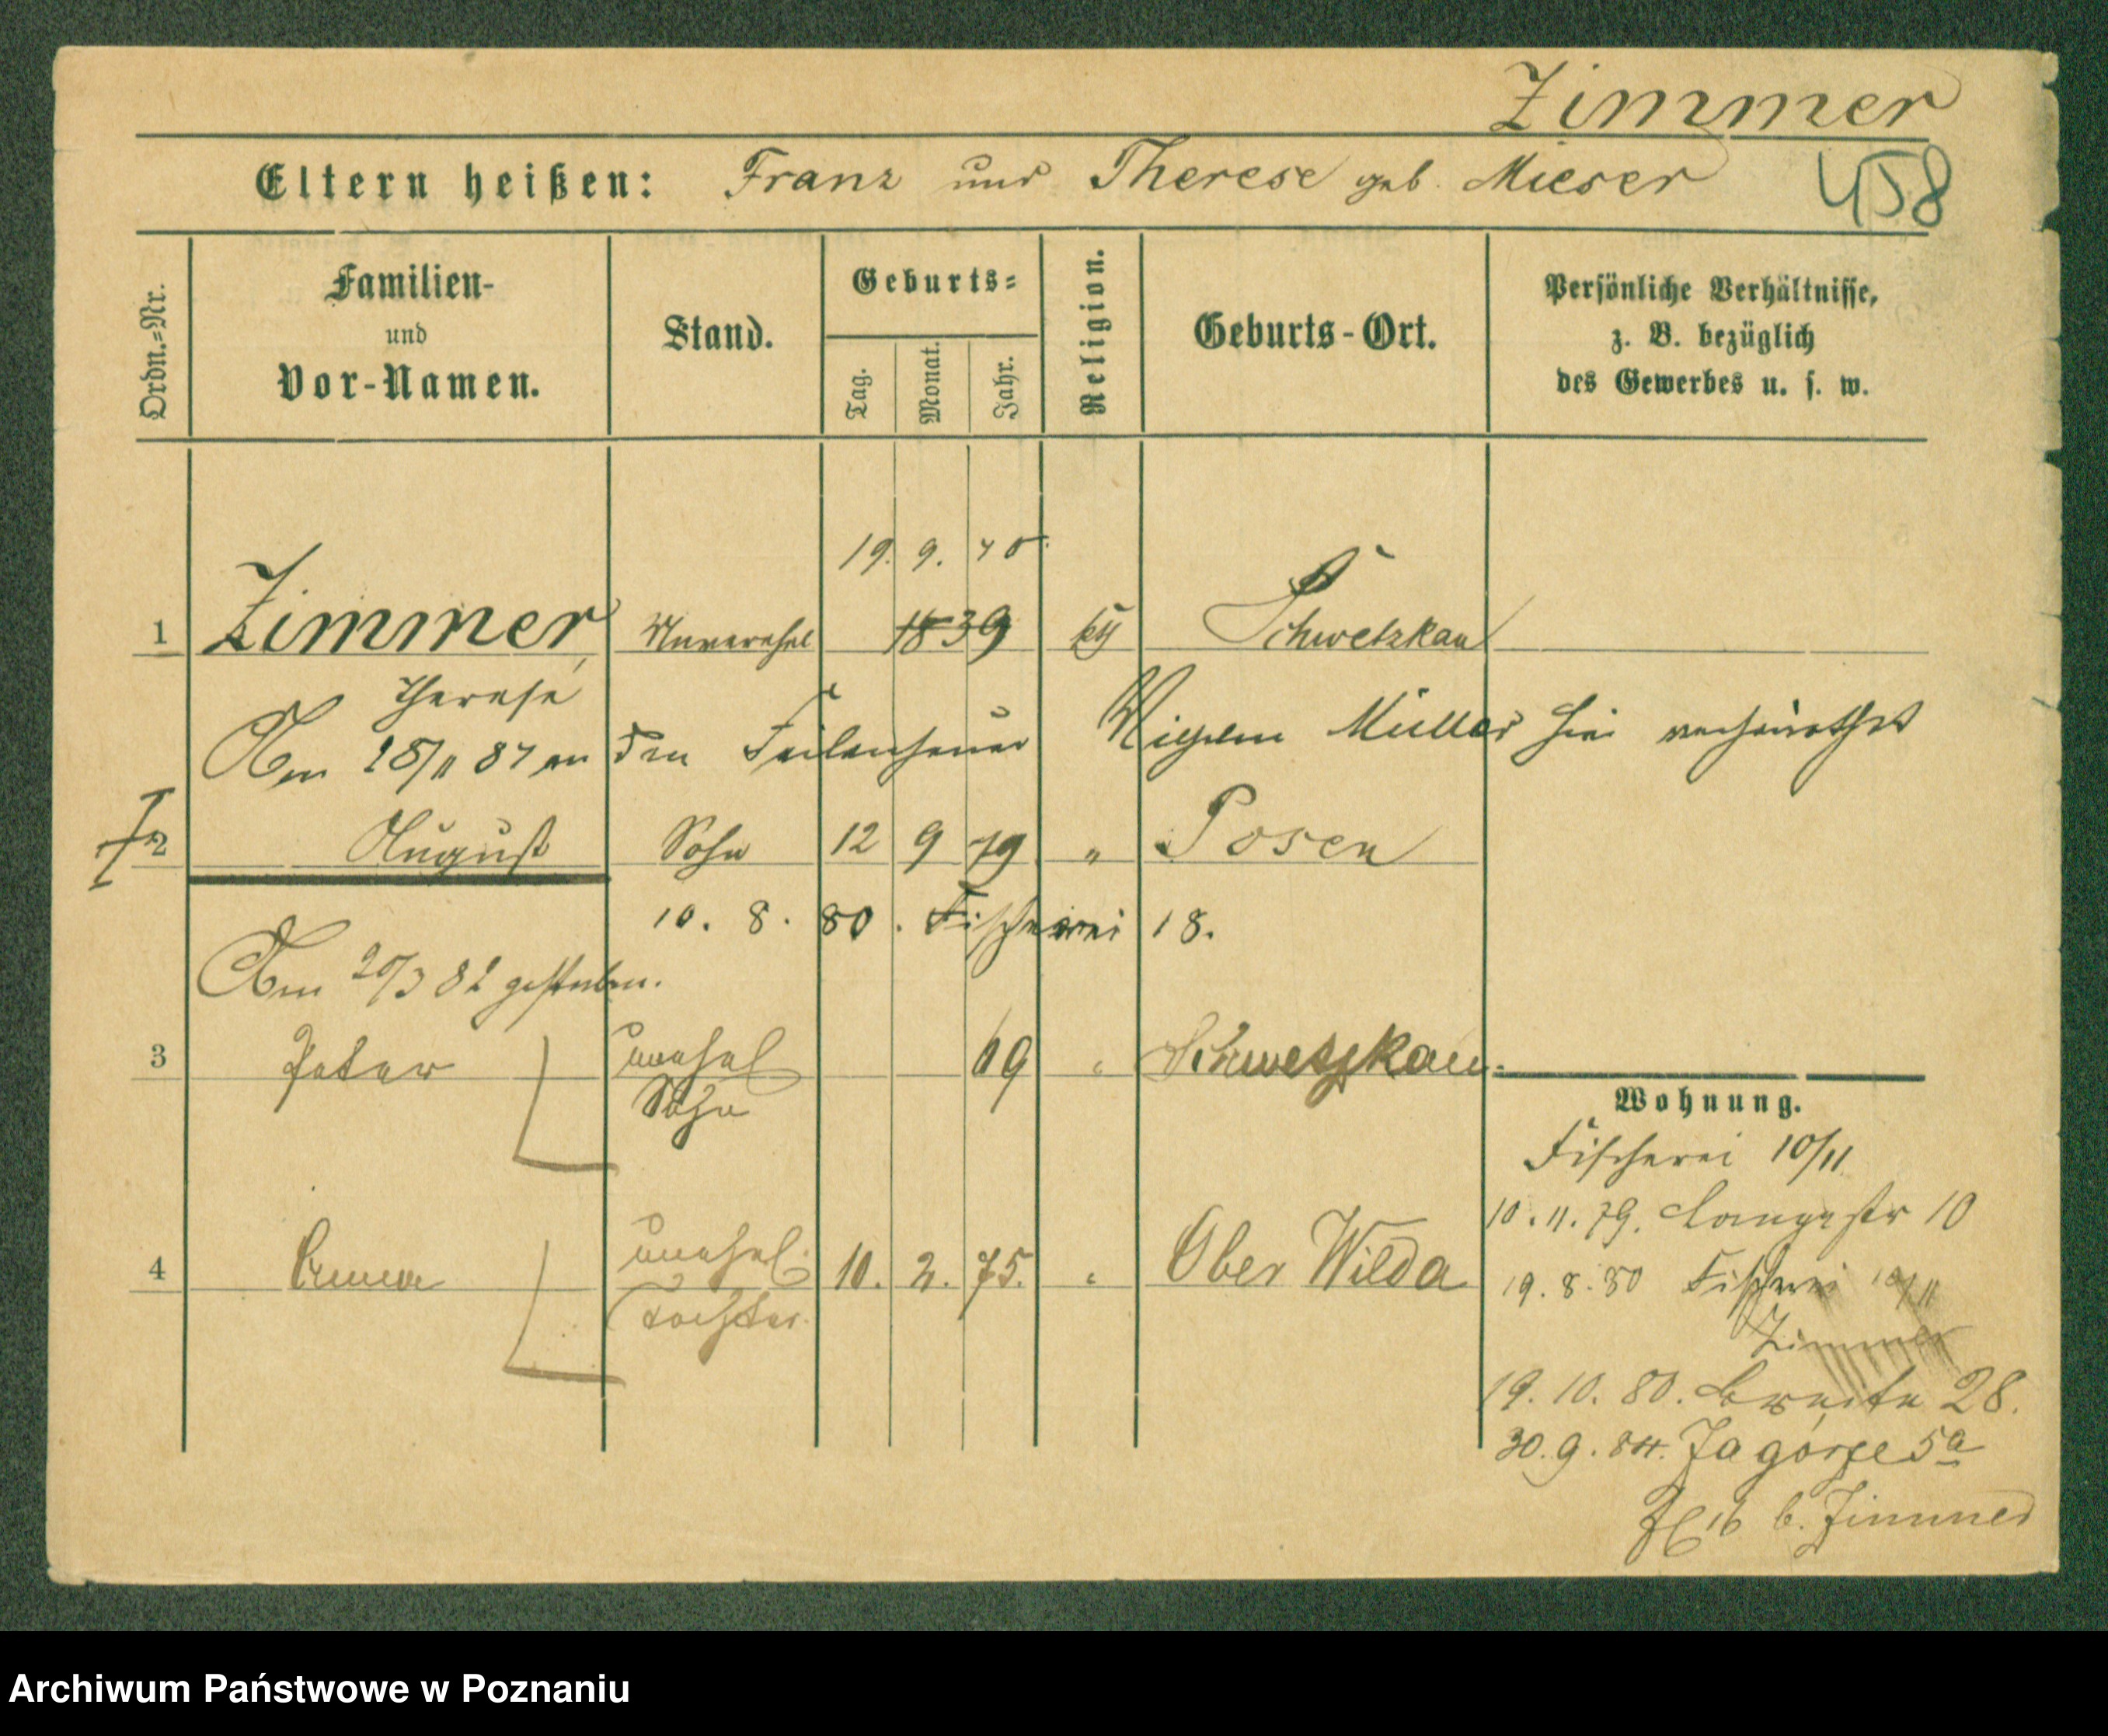 Zimmer
Eltern heißen: Franz und Therese geb. Mieser
458
Ordn.=Nr.
Familien-
und
Vor-Namen.
Stand.
Geburts=
Tag.
Monat.
Jahr.
Religion.
Geburts-Ort.
Persönliche Verhältnisse,
z. B. bezüglich
des Gewerbes u. s. w.
19. 9. 40.
1 Zimmer, Unverehel 1839 kth Schwetzkau
Therese
Am 28/11 87 an den Feilenhauer Wilhelm Müller hier verheirathet
2 August Sohn 12 9 79 " Posen
10. 8. 80. Fischerei 18.
Am 20/3 82 gestorben.
3 Peter unehel 69 " Schwetzkau.
Sohn
Wohnung.
Fischerei 10/11
10. 11. 79. Langestr 10
4 unehel. 10. 2. 75. " Ober Wilda
Tochter.
19. 8. 80 Fischerei 10/11
Zimmer
19. 10. 80. Breite 28.
30. 9. 84. Zagórze 5a
b. Zimmer
Archiwum Państwowe w Poznaniu